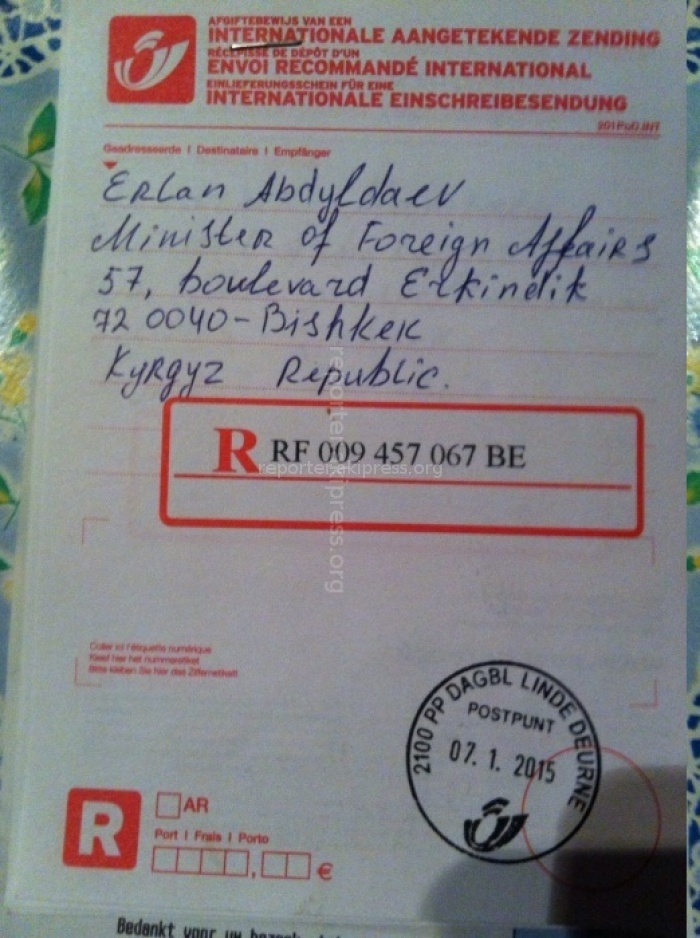 AFGIFTEBEWIJS VAN EEN
INTERNATIONALE AANGETEKENDE ZENDING
RÉCÉPISSÉ DE DÉPÔT D'UN
ENVOI RECOMMANDÉ INTERNATIONAL
EINLIEFERUNGSSCHEIN FÜR EINE
INTERNATIONALE EINSCHREIBESENDUNG
Geadresseerde I Destinataire I Empfänger
Erlan Abdyldaev
Minister of Foreign Affairs
57, boulevard Erkindik
72 0040 - Bishkek
Kyrgyz Republic.
R RF 009 457 067 BE
reporter.akipress.org
reporter.akipress.org
Coller ici l'étiquette numérique
Kleef hier het nummeretiket
Bitte kleben Sie hier das Ziffernetikett
2100 PP DAGBL LINDE DEURNE
POSTPUNT
07. 1. 2015
R
AR
Port I Frais I Porto
, €
Bedankt voor uw bezoek